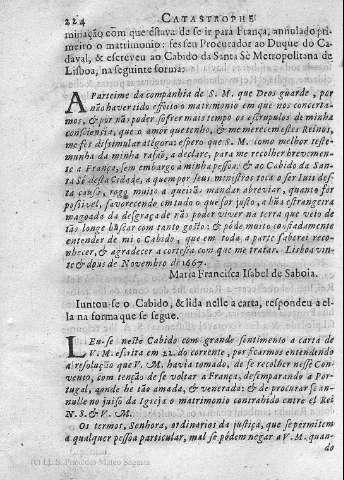 224 CATASTROPHE
minação com que estava de se ir para França, annulado pri-
meiro o matrimonio: fes seu Procurador ao Duque do Ca-
daval, & escreveu ao Cabido da Santa Sé Metropolitana de
Lisboa, na seguinte forma.
AParteime da companhia de S. M. que Deos guarde, por
não haver tido effeito o matrimonio em que nos concerta-
mos, & por não poder sofrer mais tempo os escrupulos de minha
consciencia, que o amor que tenho, & me merecem estes Reinos,
me fes dissimular atégora: espero que S. M. como melhor teste-
munha da minha rasão, a declare, para me recolher brevemen-
te a França, sem embargo à minha pessoa: & ao Cabido da San-
ta Sé desta Cidade, a quem por seus ministros toca o ser Iuis des-
ta causa, rogo muito a queirão mandar abreviar, quanto for
possivel, favorecendo em tudo o que for justo, a hũa estrangeira
magoada da desgraça de não poder viver na terra que veio de
tão longe buscar com tanto gosto: & póde muito confiadamente
entender de mi o Cabido, que em toda a parte saberei reco-
nhecer, & agradecer a cortesia com que me tratar. Lisboa vin-
te & dous de Novembro de 1667.
Maria Francisca Isabel de Saboia.
Iuntou-se o Cabido, & lida nelle a carta, respondeu a el-
la na forma que se segue.
LEn-se neste Cabido com grande sentimento a carta de
V. M. escrita em 22. do corrente, por ficarmos entendendo
a resolução que V. M. havia tomado, de se recolher nesse Con-
vento, com tenção de se voltar a França, desemparando a Por-
tugal, aonde he tão amada, & venerada: & de procurar se an-
nulle no juiso da Igreja o matrimonio contrahido entre el Rei
N. S. & V. M.
Os termos, Senhora, ordinarios da justiça, que se permitem
a qualquer pessoa particular, mal se podem negar a V. M. quan-
do